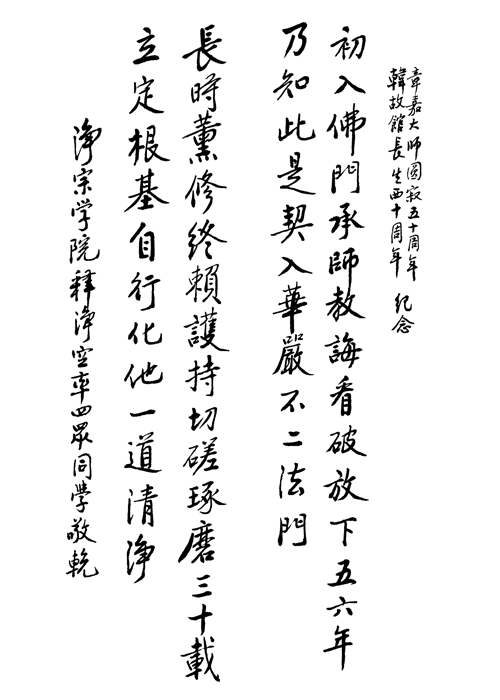 章嘉大师圆寂五十周年
韓故館長生西十周年 纪念
初入佛門承師教誨看破放下五六年
乃知此是契入華嚴不二法門
長時薰修終賴護持切磋琢磨三十載
立定根基自行化他一道清淨
淨宗学院釋淨空率四眾同學敬輓